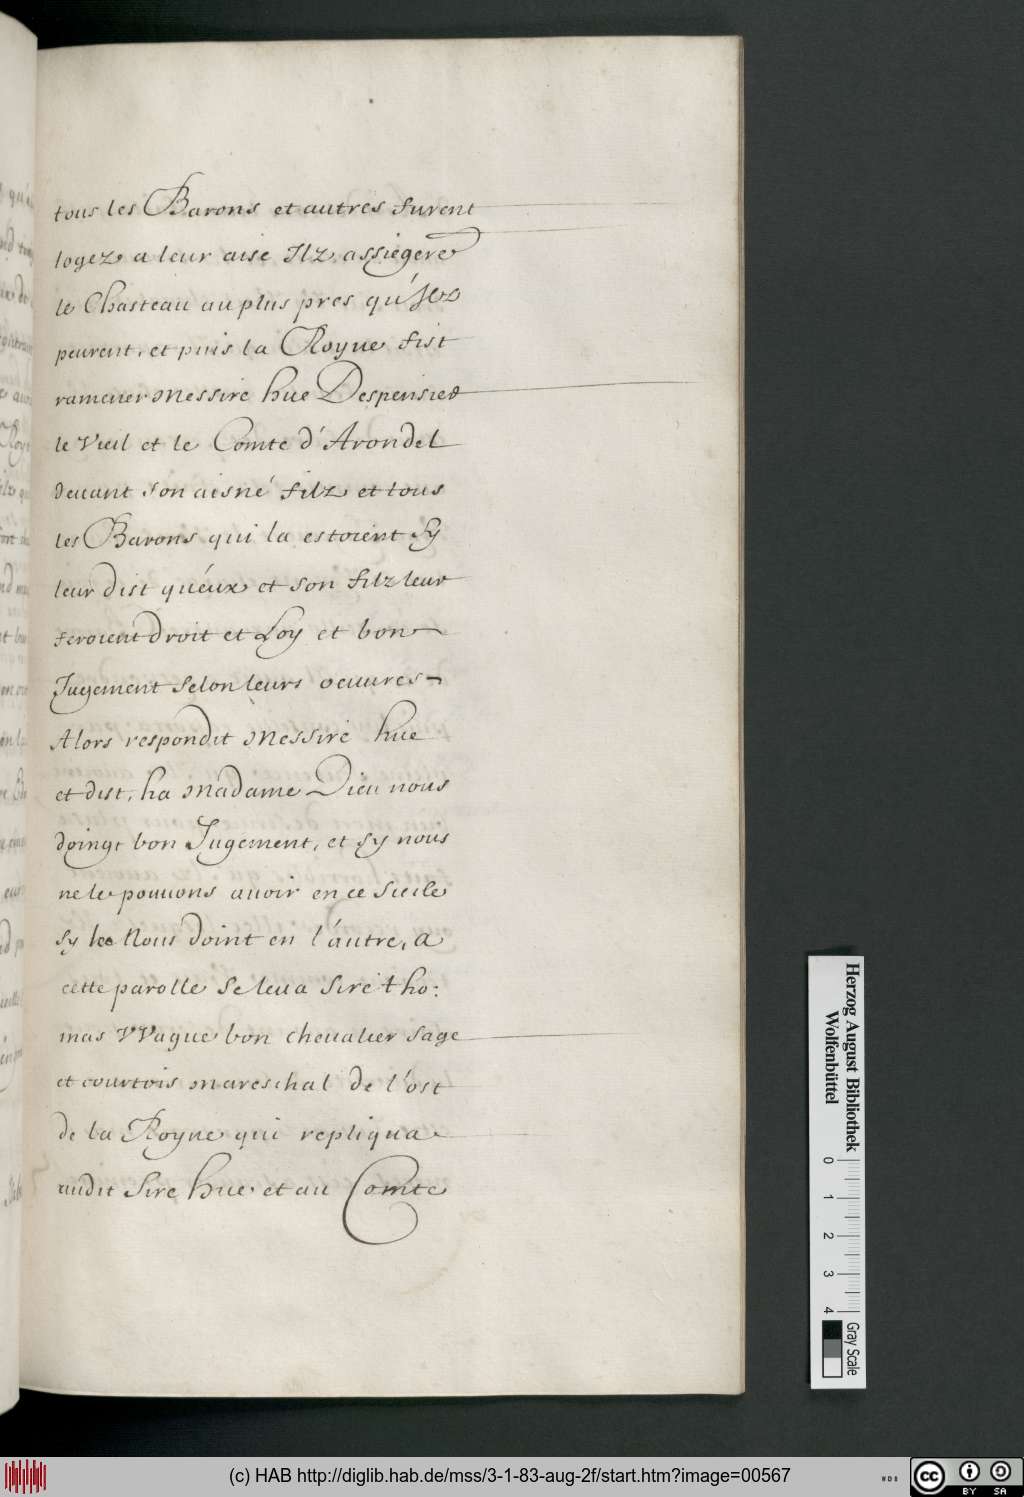 tous les Barons et autres furent
logez a leur aise Ilz assiegerẽ
le Chasteau au plus pres qu'Ilz
peurent, et puis la Royne fist
ramener Messire hue Despensier
le Vieil et le Comte d'Arondel
devant son aisné filz et tous
les Barons qui la estoient Sy
leur dist qu'eux et son filz leur
feroient droit et Loy et bon
Jugement selon leurs oeuures
Alors respondit Messire hue
et dist, ha Madame Dieu nous
doingt bon Jugement, et sy nous
ne le pouuons auoir en ce siecle
sy le Nous doint en l'autre, A
cette parolle se leua Sire tho:
mas VVague bon cheualier sage
et courtois Mareschal de l'ost
de la Royne qui repliqua
audit Sire hue et au Comte
Herzog August Bibliothek
Wolfenbüttel
0 1 2 3 4
Gray Scale
(c) HAB http://diglib.hab.de/mss/3-1-83-aug-2f/start.htm?image=00567
WDB
cc BY SA